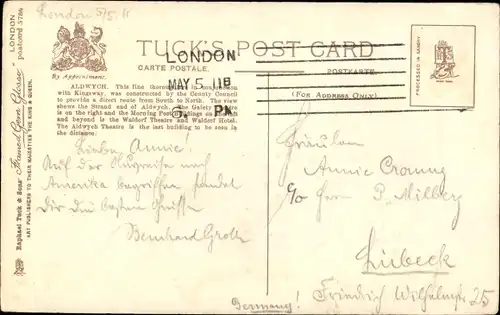 London 5/5.11
TUCK'S POST CARD
CARTE POSTALE.
POSTKARTE.
(FOR ADDRESS ONLY)
By Appointment.
LONDON
MAY 5 11
PM
PROCESSED IN SAXONY
LONDON
postcard 3786
"Framed Gem Glosso"
Raphael Tuck & Sons'
ART PUBLISHERS TO THEIR MAJESTIES THE KING & QUEEN.
ALDWYCH. This fine thoroughfare in conjunction
with Kingsway, was constructed by the County Council
to provide a direct route from South to North. The view
shows the Strand and end of Aldwych, the Gaiety Theatre
is on the right and the Morning Post Buildings on the left
and beyond is the Waldorf Theatre and Waldorf Hotel.
The Aldwych Theatre is the last building to be seen in
the distance.
Lieben Annie!
Auf der Reise nach
Amerika begriffen sendet
Dir die besten Grüsse
Bernhard
Fräulein
Annie
c/o Herrn P.
Lübeck
Friedrich Wilhelmstr 25
Germany!